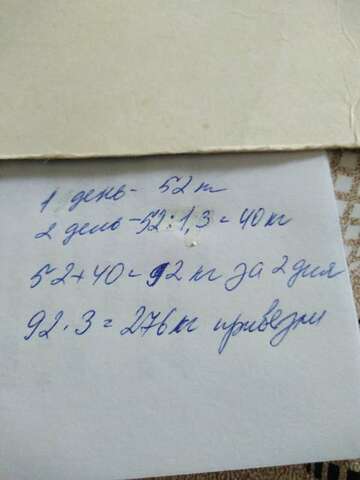 1 день - 52 кг
2 день - 52 : 1,3 = 40 кг
52 + 40 = 92 кг за 2 дня
92 · 3 = 276 кг привезли